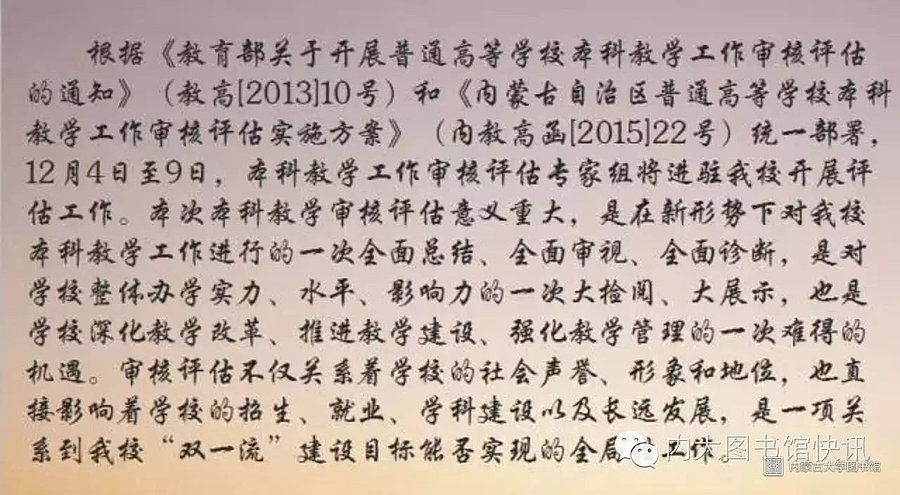 根据《教育部关于开展普通高等学校本科教学工作审核评估
的通知》（教高[2013]10号）和《内蒙古自治区普通高等学校本科
教学工作审核评估实施方案》（内教高函[2015]22号）统一部署，
12月4日至9日，本科教学工作审核评估专家组将进驻我校开展评
估工作。本次本科教学审核评估意义重大，是在新形势下对我校
本科教学工作进行的一次全面总结、全面审视、全面诊断，是对
学校整体办学实力、水平、影响力的一次大检阅、大展示，也是
学校深化教学改革、推进教学建设、强化教学管理的一次难得的
机遇。审核评估不仅关系着学校的社会声誉、形象和地位，也直
接影响着学校的招生、就业、学科建设以及长远发展，是一项关
系到我校“双一流”建设目标能否实现的全局 工作。
内大图书馆快讯
内蒙古大学图书馆